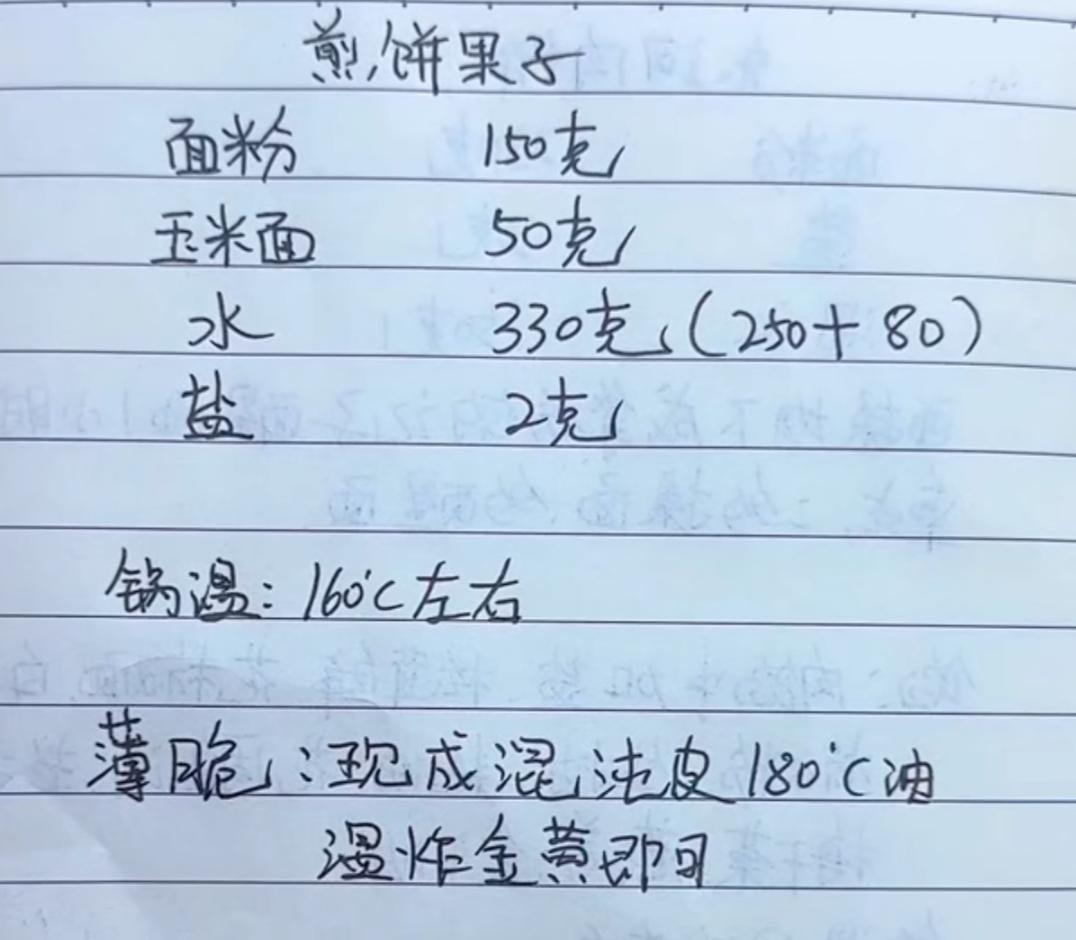 煎饼果子
面粉 150克
玉米面 50克
水 330克(250+80)
盐 2克
锅温:160℃左右
薄脆:现成混沌皮180℃油
温炸金黄即可